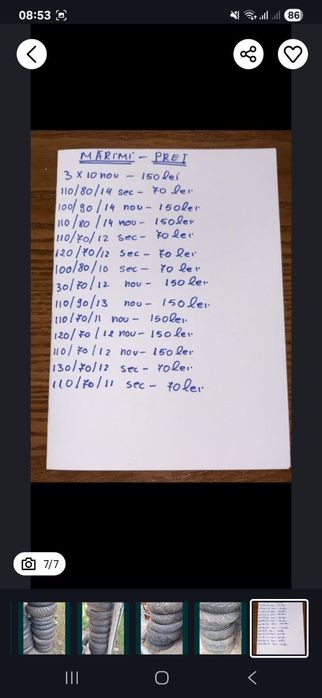 08:53
86
MĂRIMI - PREȚ
3 x 10 nou - 150 lei
110/80/14 sec - 70 lei
100/90/14 nou - 150 lei
110/80/14 nou - 150 lei
110/70/12 sec - 70 lei
120/70/12 sec - 70 lei
100/80/10 sec - 70 lei
30/70/12 nou - 150 lei
110/90/13 nou - 150 lei
110/70/11 nou - 150 lei
120/70/12 nou - 150 lei
110/70/12 nou - 150 lei
130/70/12 sec - 70 lei
110/70/11 sec - 70 lei
7/7